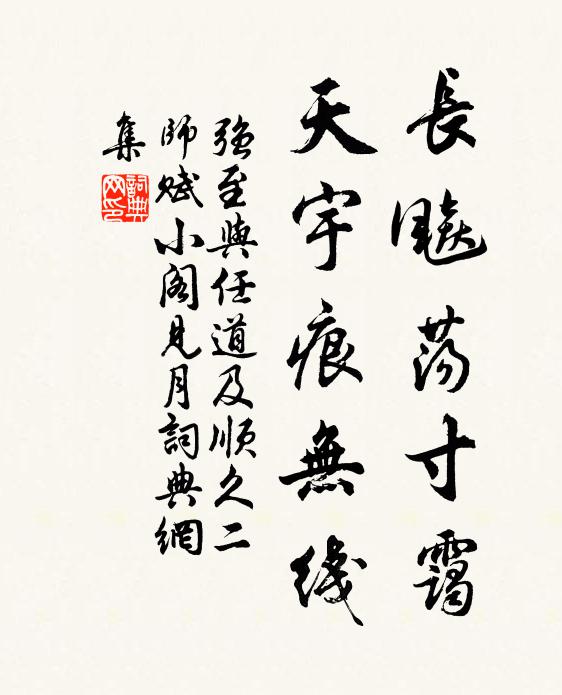 長飈蕩寸靄
天宇痕無綫
強至與任道及順久二
師賦小閣見月詞典網
集
詞典
网印